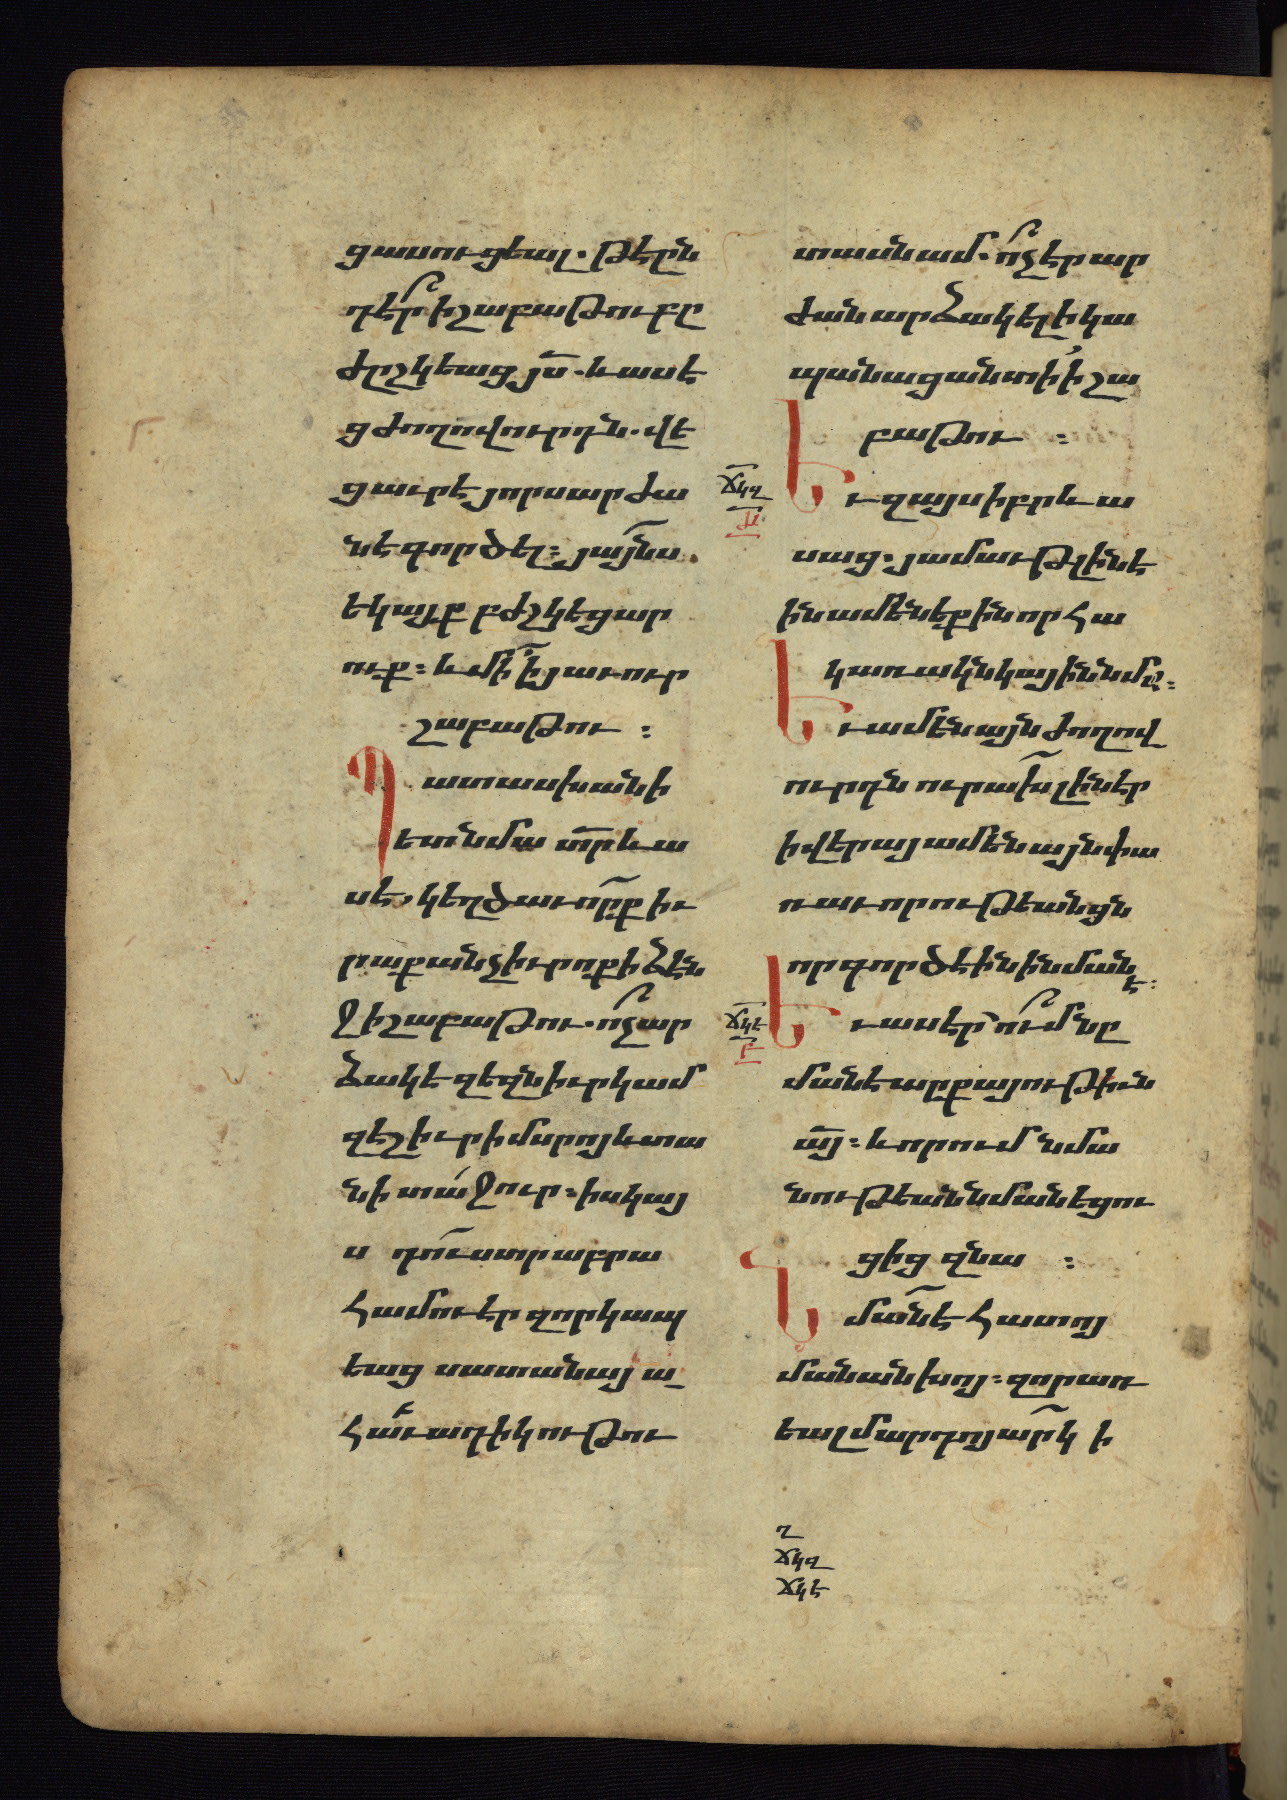 ցասուցեալ. թէ ըն
դէր ի շաբաթու բը
ժըշկեաց յս. և ասէ
ց ժողովուրդն. վե
ց աւր է յորս արժա
ն է գործել: յայնս.
եկայք բժշկեցար
ուք: և մի ի յաւուր
շաբաթու :
Պատասխանի
ետ նմա տր և ա
սէ. կեղծաւորք իւ
րաքանչիւր ոք ի ձէն
ջ ի շաբաթու. ոչ ար
ձակէ զեզն իւր կամ
զէշ իւր ի մսրոյ և տա
նի տա ջուր: իսկ այ
ս դուստր աբրա
համու էր զոր կապ
եաց սատանայ ա_
հաւադիկ ութու
տասն ամ. ոչ էր ար
ժան արձակել ի կա
պանաց անտի ի շա
բաթու :
ճկդ
Ժ
Եւ զայս իբրև ա
սաց. յամաւթ լինէ
ին ամենեքին որ հա
կառակն կային նմը:
Եւ ամենայն ժողով
ուրդն ուրախ լինէր
ի վերայ ամենայն փա
ռաւորութեանցն
որ գործէին ի նմանէ:
ճկե
Բ
Եւ ասէր ում նը
մանէ արքայութիւն
այ: և որում նմա
նութեան նմանեցու
ցից զնա :
Նման է հատոյ
մանանխոյ: զոր առ
եալ մարդոյ արկ ի
ղ
ճկդ
ճկե